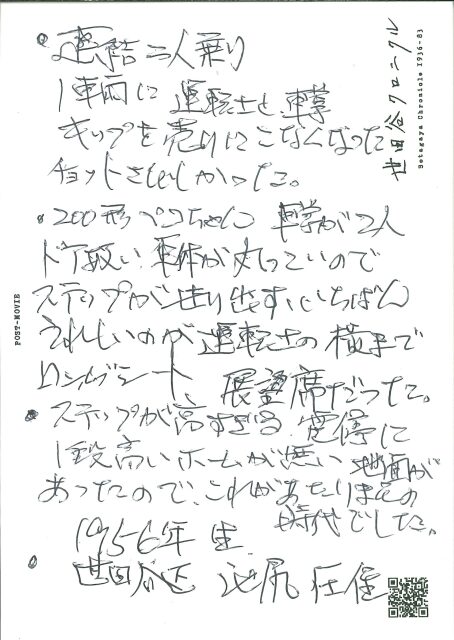 世田谷クロニクル
Setagaya Chronicle 1936-83
POST-MOVIE
連結二人乗り
1車両に 運転士と車掌
キップを売りにこなくなった
チョットさびしかった。
200形ペコちゃん 車掌が2人
ドア扱い 車体が丸っこいので
ステップがせり出す、いちばん
うれしいのが運転士の横まで
ロングシート 展望席だった。
ステップが高すぎる 電停に
1段高いホームが無い 地面が
あったので、これがあたりまえの
時代でした。
1956年 生
世田谷区 池尻 在住